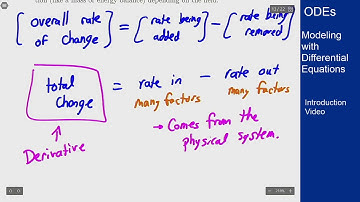 tion (like a mass or energy balance) depending on the field.
[overall rate of change] = [rate being added] - [rate being removed]
total change = rate in - rate out
many factors many factors
→ Comes from the physical system.
↑
Derivative
ODEs
Modeling
with
Differential
Equations
Introduction
Video